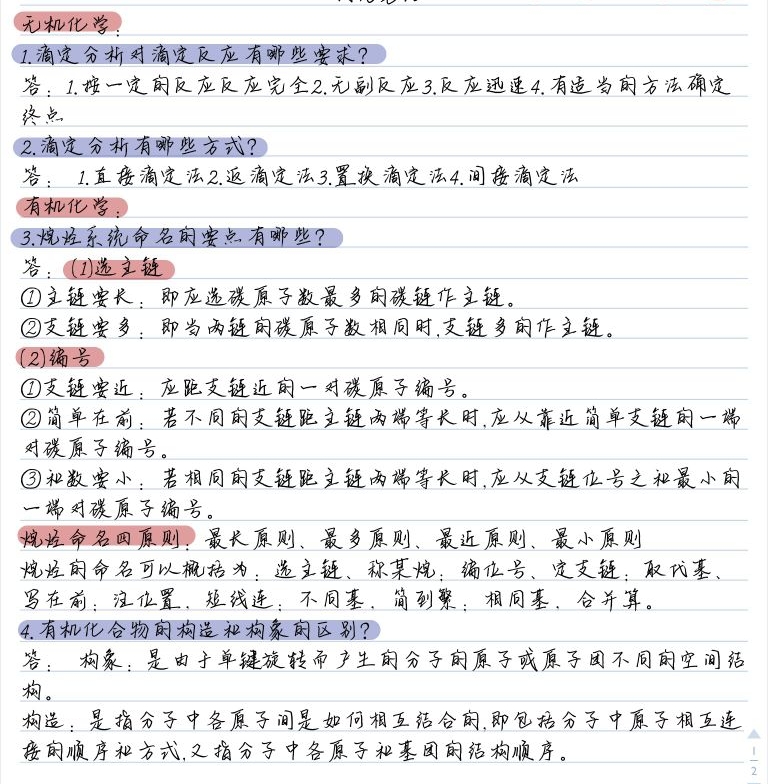 无机化学：
1.滴定分析对滴定反应有哪些要求？
答：1.按一定的反应反应完全2.无副反应3.反应迅速4.有适当的方法确定
终点
2.滴定分析有哪些方式？
答： 1.直接滴定法2.返滴定法3.置换滴定法4.间接滴定法
有机化学：
3.烷烃系统命名的要点有哪些？
答：(1)选主链
①主链要长：即应选碳原子数最多的碳链作主链。
②支链要多：即当两链的碳原子数相同时,支链多的作主链。
(2)编号
①支链要近：应距支链近的一对碳原子编号。
②简单在前：若不同的支链距主链两端等长时,应从靠近简单支链的一端
对碳原子编号。
③和数要小：若相同的支链距主链两端等长时,应从支链位号之和最小的
一端对碳原子编号。
烷烃命名四原则：最长原则、最多原则、最近原则、最小原则
烷烃的命名可以概括为：选主链、称某烷；编位号、定支链；取代基、
写在前；注位置、短线连；不同基、简到繁；相同基、合并算。
4.有机化合物的构造和构象的区别？
答： 构象：是由于单键旋转而产生的分子的原子或原子团不同的空间结
构。
构造：是指分子中各原子间是如何相互结合的,即包括分子中原子相互连
接的顺序和方式,又指分子中各原子和基团的结构顺序。
1
2